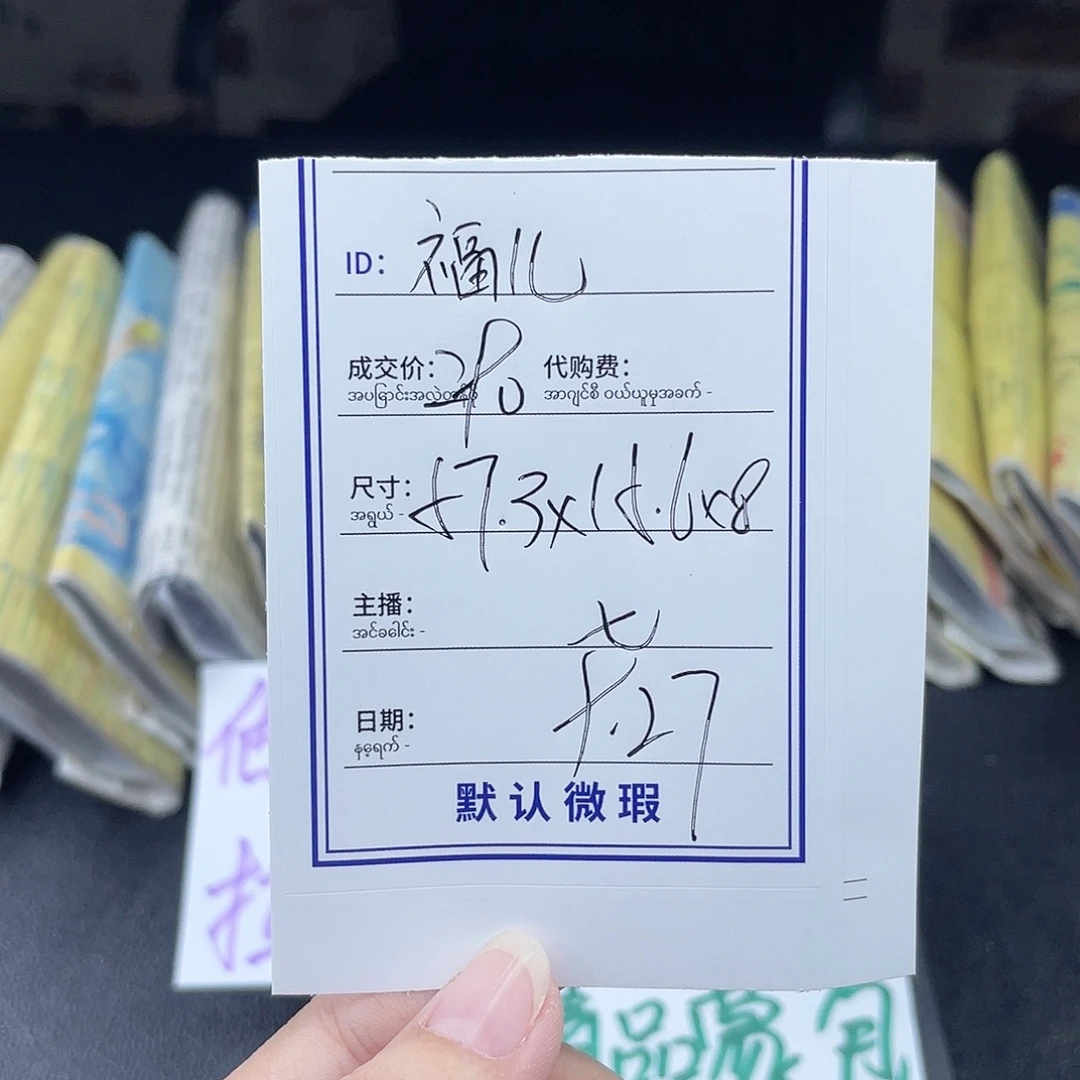 ID: 福儿
成交价: 代购费:
အာဂျင်စီ ဝယ်ယူမှုအခက် -
尺寸: 57.3x15.6x8
အရွယ် -
主播: 七
အင်ခေါင်း -
日期: .27
နေ့ရက် -
默认微瑕
品